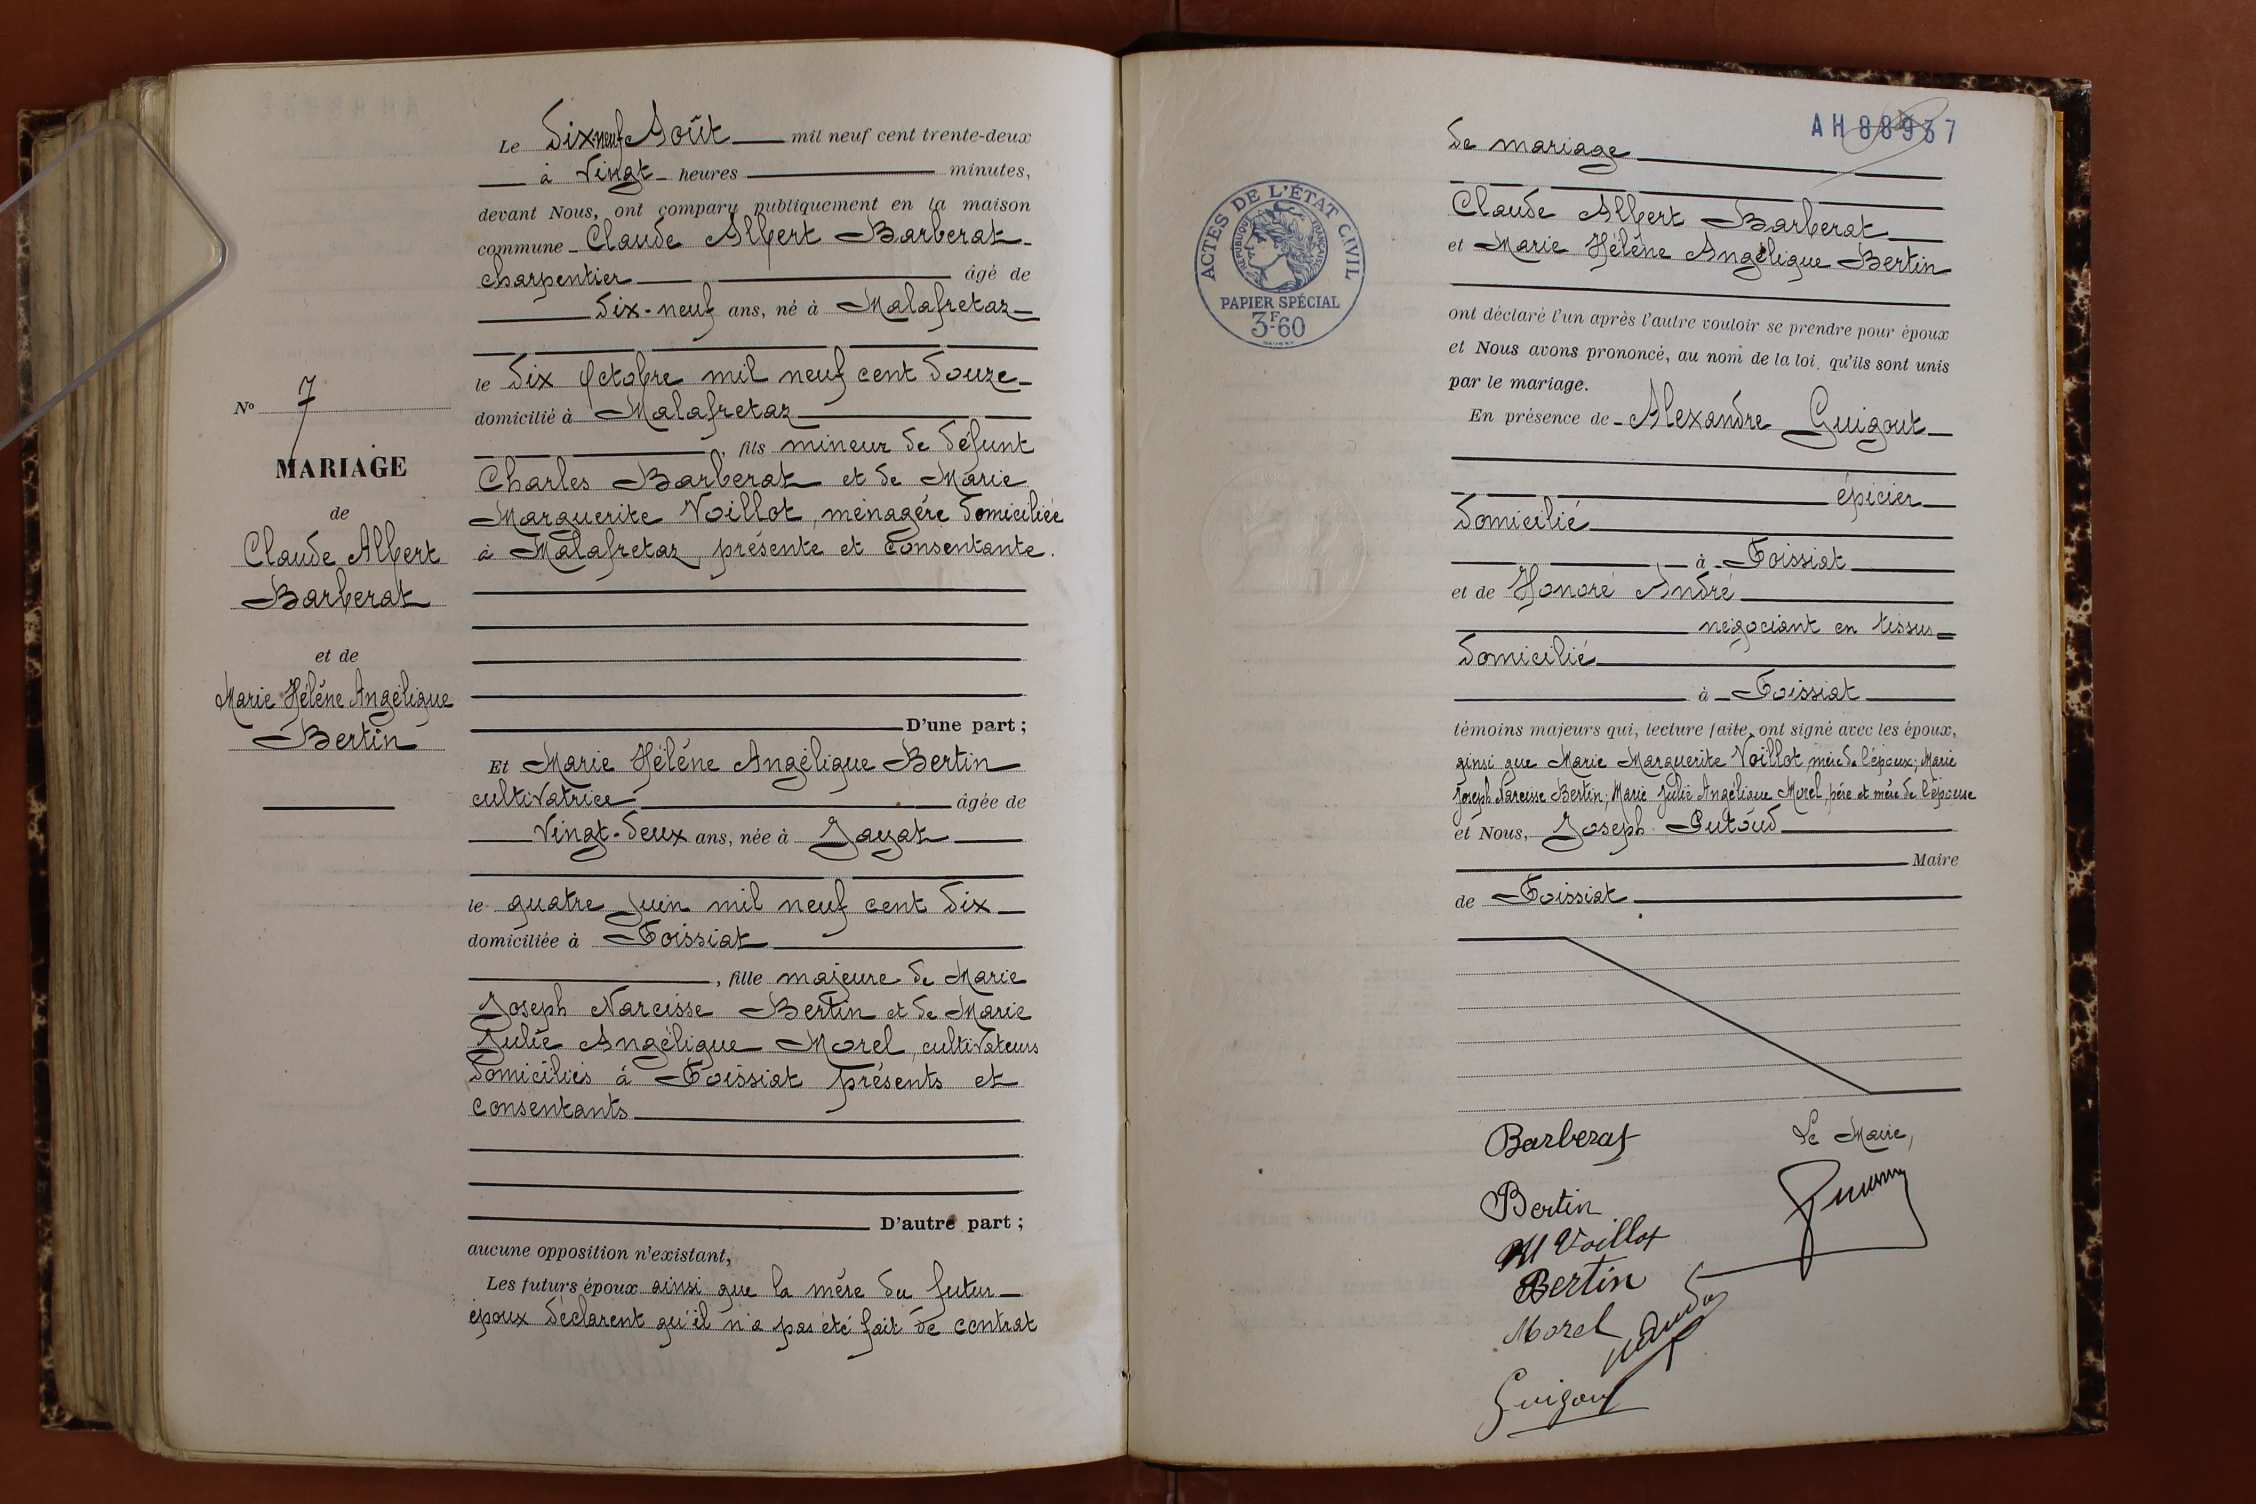 Le Dix neuf Août mil neuf cent trente-deux
à Vingt heures minutes,
devant Nous, ont comparu publiquement en la maison
commune Claude Albert Barberat
charpentier âgé de
Dix-neuf ans, né à Malafretaz
le Dix Octobre mil neuf cent Douze
domicilié à Malafretaz
, fils mineur de défunt
Charles Barberat et de Marie
Marguerite Voillot, ménagère domiciliée
à Malafretaz, présente et consentante.
D'une part ;
Nº 7
MARIAGE
de
Claude Albert
Barberat
et de
Marie Hélène Angélique
Bertin
Et Marie Hélène Angélique Bertin
cultivatrice âgée de
Vingt-deux ans, née à Jayat
le quatre Juin mil neuf cent Dix
domiciliée à Foissiat
, fille majeure de Marie
Joseph Narcisse Bertin et de Marie
Julie Angélique Morel, cultivateurs
domiciliés à Foissiat présents et
consentants
D'autre part ;
aucune opposition n'existant,
Les futurs époux ainsi que la mère du futur
époux déclarent qu'il n'a pas été fait de contrat
AH 88937
de mariage
ACTES DE L'ÉTAT CIVIL
RÉPUBLIQUE FRANÇAISE
PAPIER SPÉCIAL
3F60
Claude Albert Barberat
et Marie Hélène Angélique Bertin
ont déclaré l'un après l'autre vouloir se prendre pour époux
et Nous avons prononcé, au nom de la loi, qu'ils sont unis
par le mariage.
En présence de Alexandre Guigout
épicier
domicilié
à Foissiat
et de Honoré André
négociant en tissus
domicilié
à Foissiat
témoins majeurs qui, lecture faite, ont signé avec les époux,
ainsi que Marie Marguerite Voillot, mère de l'époux; Marie
Joseph Narcisse Bertin; Marie Julie Angélique Morel, père et mère de l'épouse
et Nous, Joseph Putoud
Maire
de Foissiat
Barberat
Le Maire,
Bertin
M Voillot
Bertin
Morel
Guigout